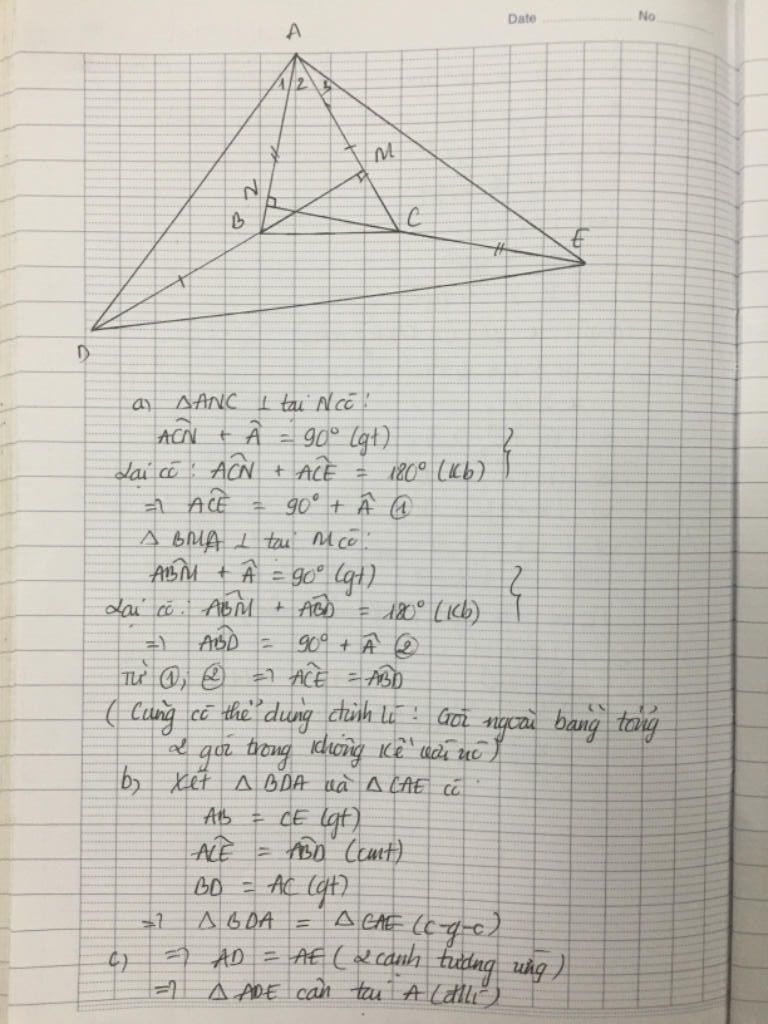 Date No
A
1 2 3
M
N
B C
E
D
a) △ANC ⊥ tại N có:
AĈN + Â = 90° (gt)
Lại có: AĈN + AĈE = 180° (Kb)
=> AĈE = 90° + Â ①
△ BMA ⊥ tại M có:
AB̂M + Â = 90° (gt)
Lại có: AB̂M + AB̂D = 180° (Kb)
=> AB̂D = 90° + Â ②
Từ ①, ② => AĈE = AB̂D
(Cũng có thể dùng định lí: Góc ngoài bằng tổng
2 góc trong không kề với nó)
b) Xét △ BDA và △ CAE có
AB = CE (gt)
AĈE = AB̂D (cmt)
BD = AC (gt)
=> △ BDA = △ CAE (c-g-c)
c) => AD = AE (2 cạnh tương ứng)
=> △ ADE cân tại A (đlí)